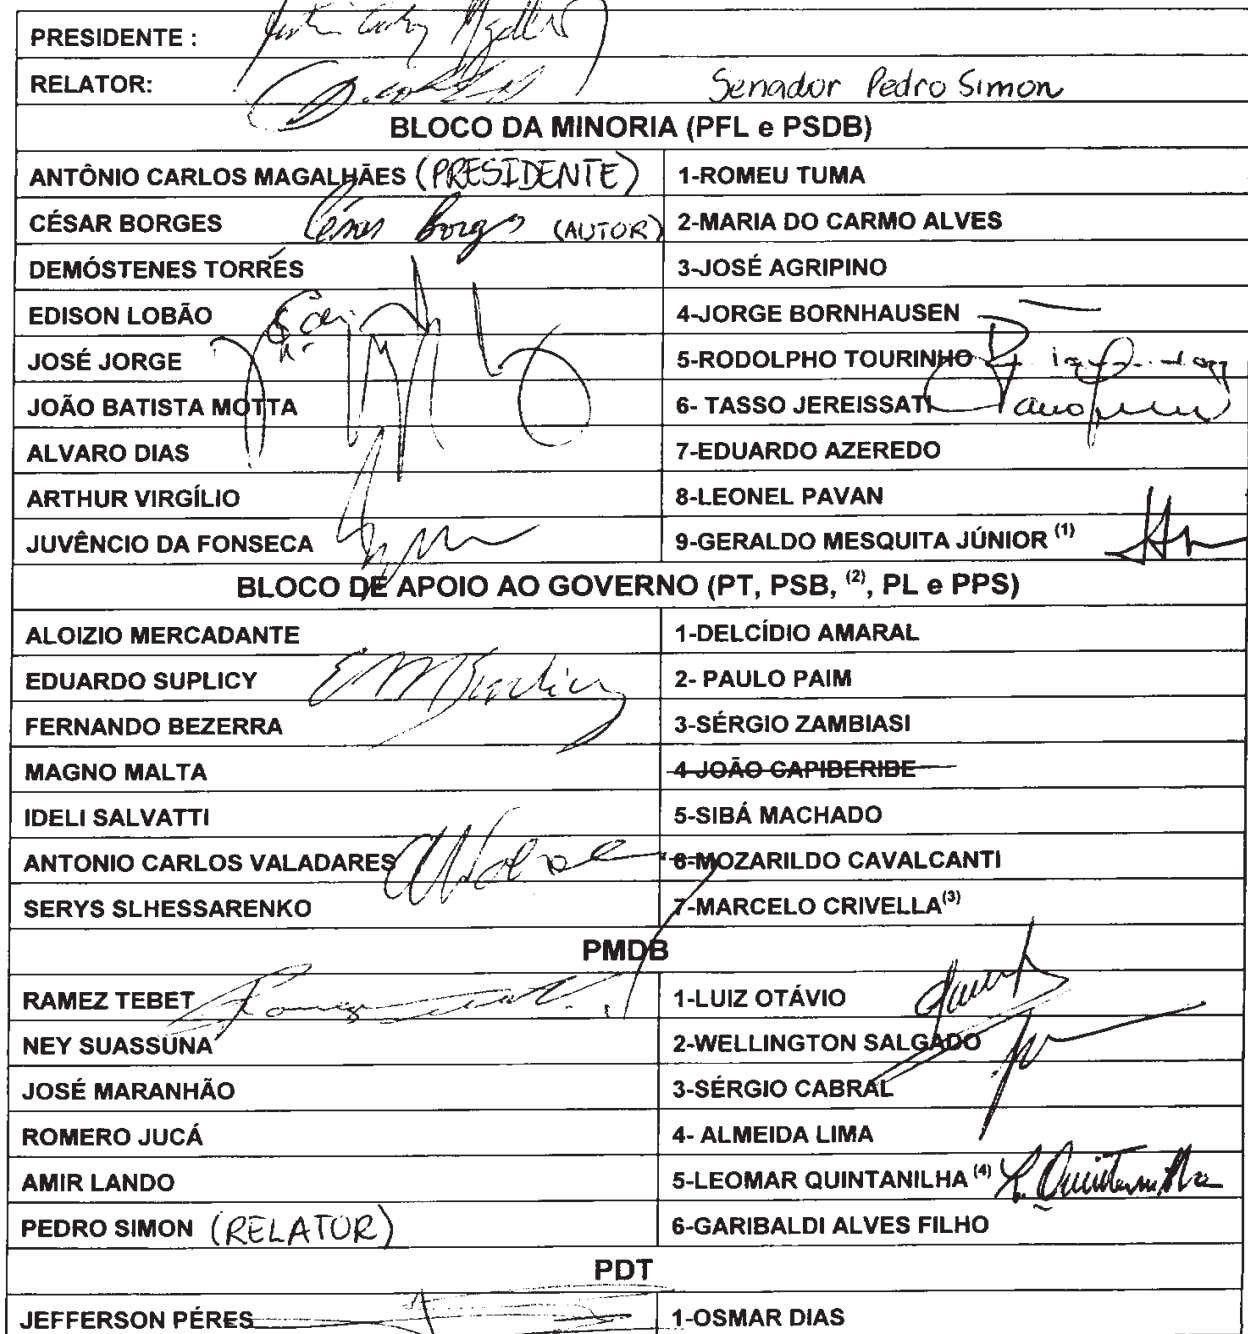 PRESIDENTE :
RELATOR: Senador Pedro Simon
BLOCO DA MINORIA (PFL e PSDB)
ANTÔNIO CARLOS MAGALHÃES (PRESIDENTE) 1-ROMEU TUMA
CÉSAR BORGES César Borges (AUTOR) 2-MARIA DO CARMO ALVES
DEMÓSTENES TORRES 3-JOSÉ AGRIPINO
EDISON LOBÃO 4-JORGE BORNHAUSEN
JOSÉ JORGE 5-RODOLPHO TOURINHO
JOÃO BATISTA MOTTA 6- TASSO JEREISSATI
ALVARO DIAS 7-EDUARDO AZEREDO
ARTHUR VIRGÍLIO 8-LEONEL PAVAN
JUVÊNCIO DA FONSECA 9-GERALDO MESQUITA JÚNIOR (1)
BLOCO DE APOIO AO GOVERNO (PT, PSB, (2), PL e PPS)
ALOIZIO MERCADANTE 1-DELCÍDIO AMARAL
EDUARDO SUPLICY 2- PAULO PAIM
FERNANDO BEZERRA 3-SÉRGIO ZAMBIASI
MAGNO MALTA 4 JOÃO CAPIBERIBE
IDELI SALVATTI 5-SIBÁ MACHADO
ANTONIO CARLOS VALADARES 6-MOZARILDO CAVALCANTI
SERYS SLHESSARENKO 7-MARCELO CRIVELLA(3)
PMDB
RAMEZ TEBET 1-LUIZ OTÁVIO
NEY SUASSUNA 2-WELLINGTON SALGADO
JOSÉ MARANHÃO 3-SÉRGIO CABRAL
ROMERO JUCÁ 4- ALMEIDA LIMA
AMIR LANDO 5-LEOMAR QUINTANILHA (4) L. Quintanilha
PEDRO SIMON (RELATOR) 6-GARIBALDI ALVES FILHO
PDT
JEFFERSON PÉRES 1-OSMAR DIAS